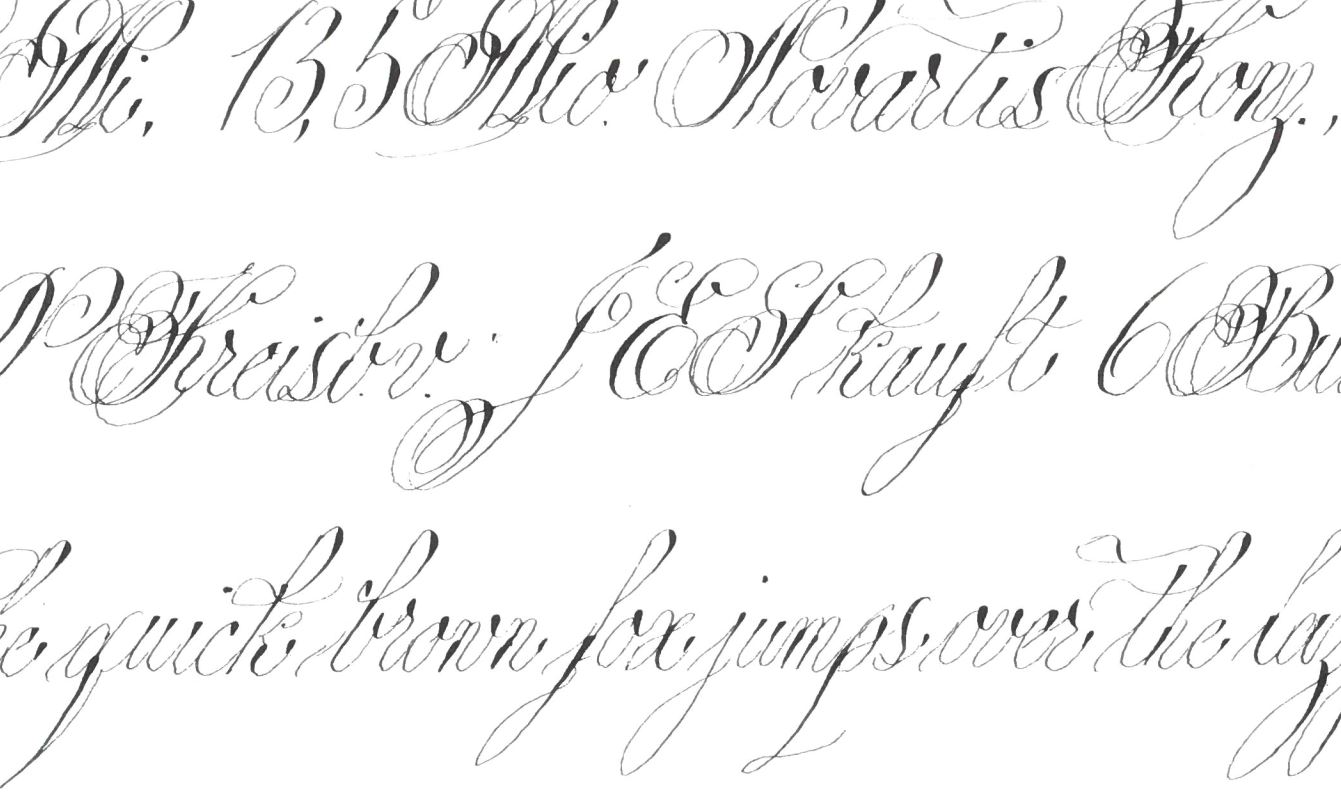 Mi. 13,5 Mio. Novartis Konz.,
Kreisb.v. J ES kauft 6 Bu
he quick brown fox jumps over the lazy